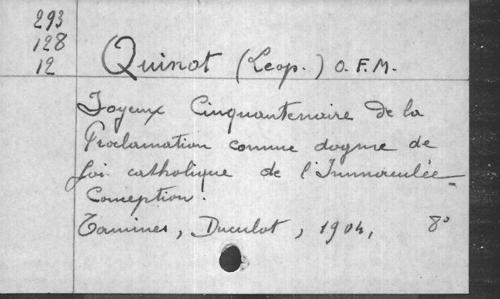 293
128
12
Quinot (Leop.) O.F.M.
Joyeux Cinquantenaire de la
Proclamation comme dogme de
foi catholique de l'Immaculée
Conception.
Tamines, Duculot, 1904, 8°